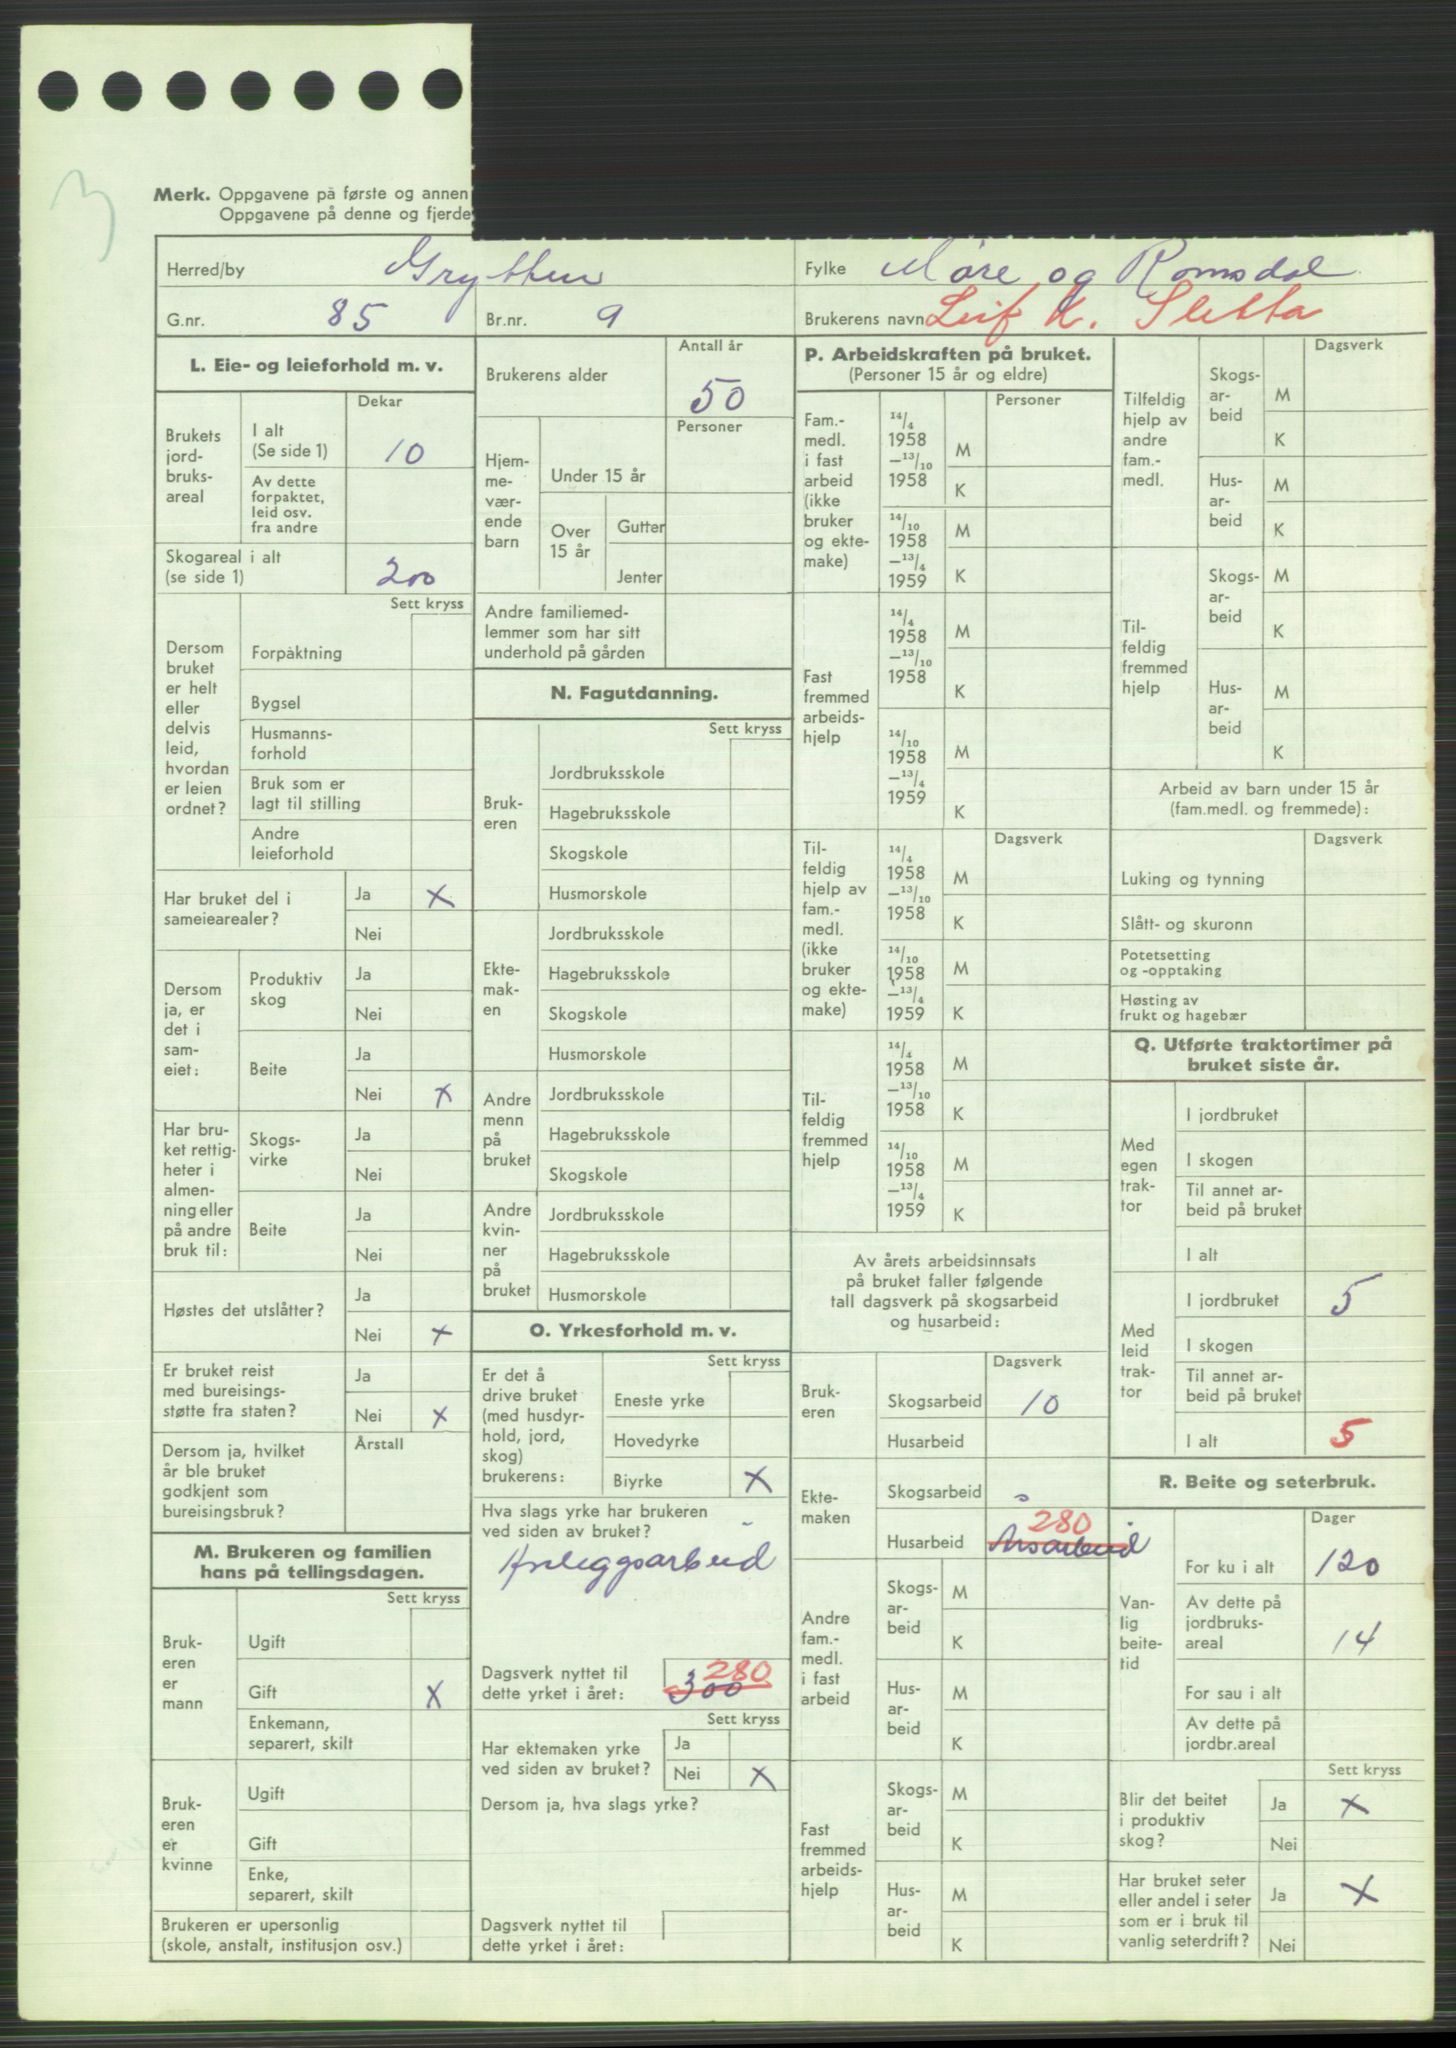 3
Merk. Oppgavene på første og annen
Oppgavene på denne og fjerde
Herred/by Grytten
Fylke Møre og Romsdal
G.nr. 85 Br.nr. 9
Brukerens navn Leif K. Sletta
L. Eie- og leieforhold m. v.
Dekar
Brukets
jord-
bruks-
areal
I alt
(Se side 1) 10
Av dette
forpaktet,
leid osv.
fra andre
Skogareal i alt
(se side 1) 200
Sett kryss
Dersom
bruket
er helt
eller
delvis
leid,
hvordan
er leien
ordnet?
Forpaktning
Bygsel
Husmanns-
forhold
Bruk som er
lagt til stilling
Andre
leieforhold
Har bruket del i
sameiearealer?
Ja X
Nei
Dersom
ja, er
det i
sam-
eiet:
Produktiv
skog
Ja
Nei
Beite
Ja
Nei X
Har bru-
ket rettig-
heter i
almen-
ning eller
på andre
bruk til:
Skogs-
virke
Ja
Nei
Beite
Ja
Nei
Høstes det utslåtter?
Ja
Nei X
Er bruket reist
med bureisings-
støtte fra staten?
Ja
Nei X
Dersom ja, hvilket
år ble bruket
godkjent som
bureisingsbruk?
Årstall
M. Brukeren og familien
hans på tellingsdagen.
Sett kryss
Bruk-
eren
er
mann
Ugift
Gift X
Enkemann,
separert, skilt
Bruk-
eren
er
kvinne
Ugift
Gift
Enke,
separert, skilt
Brukeren er upersonlig
(skole, anstalt, institusjon osv.)
Antall år
Brukerens alder 50
Personer
Hjem-
me-
vær-
ende
barn
Under 15 år
Over
15 år
Gutter
Jenter
Andre familiemed-
lemmer som har sitt
underhold på gården
N. Fagutdanning.
Sett kryss
Bruk-
eren
Jordbruksskole
Hagebruksskole
Skogskole
Husmorskole
Ekte-
mak-
en
Jordbruksskole
Hagebruksskole
Skogskole
Husmorskole
Andre
menn
på
bruket
Jordbruksskole
Hagebruksskole
Skogskole
Andre
kvin-
ner
på
bruket
Jordbruksskole
Hagebruksskole
Husmorskole
O. Yrkesforhold m. v.
Sett kryss
Er det å
drive bruket
(med husdyr-
hold, jord,
skog)
brukerens:
Eneste yrke
Hovedyrke
Biyrke X
Hva slags yrke har brukeren
ved siden av bruket?
Anleggsarbeid
Dagsverk nyttet til
dette yrket i året: 300 280
Sett kryss
Har ektemaken yrke
ved siden av bruket?
Ja
Nei X
Dersom ja, hva slags yrke?
Dagsverk nyttet til
dette yrket i året:
P. Arbeidskraften på bruket.
(Personer 15 år og eldre)
Personer
Fam.-
medl.
i fast
arbeid
(ikke
bruker
og ekte-
make)
14/4
1958
–13/10
1958
M
K
14/10
1958
–13/4
1959
M
K
Fast
fremmed
arbeids-
hjelp
14/4
1958
–13/10
1958
M
K
14/10
1958
–13/4
1959
M
K
Dagsverk
Til-
feldig
hjelp av
fam.-
medl.
(ikke
bruker
og ekte-
make)
14/4
1958
–13/10
1958
M
K
14/10
1958
–13/4
1959
M
K
Til-
feldig
fremmed
hjelp
14/4
1958
–13/10
1958
M
K
14/10
1958
–13/4
1959
M
K
Av årets arbeidsinnsats
på bruket faller følgende
tall dagsverk på skogsarbeid
og husarbeid:
Dagsverk
Bruk-
eren
Skogsarbeid 10
Husarbeid
Ekte-
maken
Skogsarbeid
Husarbeid Årsarbeid 280
Andre
fam.-
medl.
i fast
arbeid
Skogs-
ar-
beid
M
K
Hus-
ar-
beid
M
K
Fast
fremmed
arbeids-
hjelp
Skogs-
ar-
beid
M
K
Hus-
ar-
beid
M
K
Dagsverk
Tilfeldig
hjelp av
andre
fam.-
medl.
Skogs-
ar-
beid
M
K
Hus-
ar-
beid
M
K
Til-
feldig
fremmed
hjelp
Skogs-
ar-
beid
M
K
Hus-
ar-
beid
M
K
Arbeid av barn under 15 år
(fam.medl. og fremmede):
Dagsverk
Luking og tynning
Slått- og skuronn
Potetsetting
og -opptaking
Høsting av
frukt og hagebær
Q. Utførte traktortimer på
bruket siste år.
Med
egen
trak-
tor
I jordbruket
I skogen
Til annet ar-
beid på bruket
I alt
Med
leid
trak-
tor
I jordbruket 5
I skogen
Til annet ar-
beid på bruket
I alt 5
R. Beite og seterbruk.
Dager
Van-
lig
beite-
tid
For ku i alt 120
Av dette på
jordbruks-
areal 14
For sau i alt
Av dette på
jordbr.areal
Sett kryss
Blir det beitet
i produktiv
skog?
Ja X
Nei
Har bruket seter
eller andel i seter
som er i bruk til
vanlig seterdrift?
Ja X
Nei